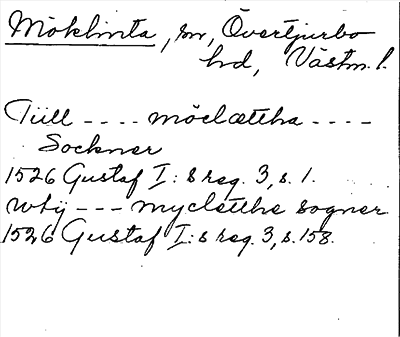 Möklinta, sn, Övertjurbo
hd, Västm. l.
Tiill ---- möclættha ----
Sockner
1526 Gustaf I:s reg. 3, s. 1.
utij --- myclettha sogner
1526 Gustaf I:s reg. 3, s. 158.